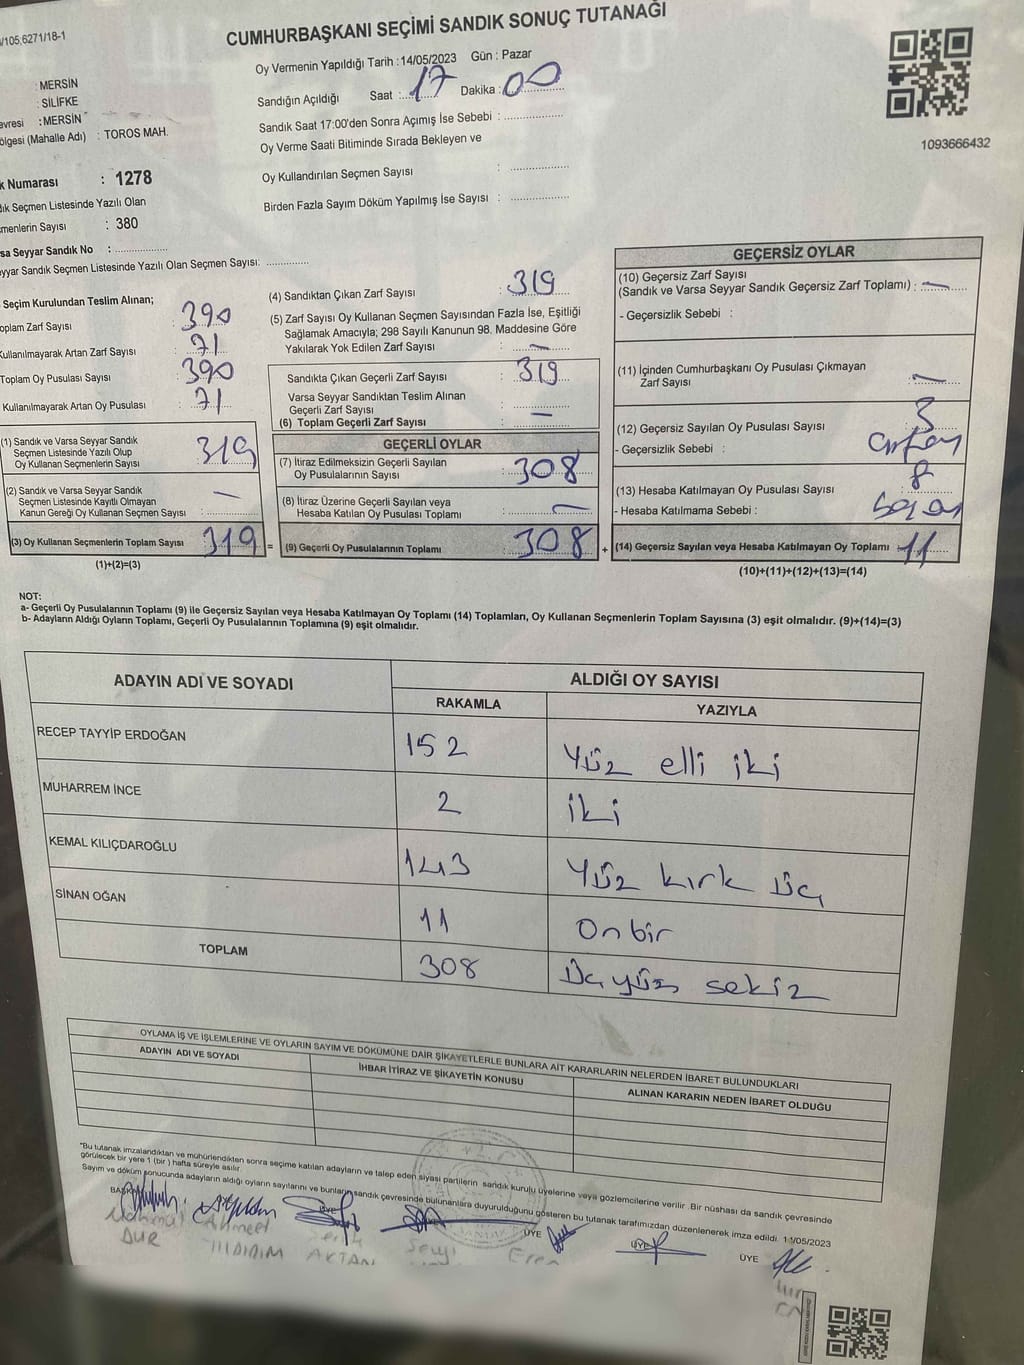 /105,6271/18-1
CUMHURBAŞKANI SEÇİMİ SANDIK SONUÇ TUTANAĞI
Oy Vermenin Yapıldığı Tarih : 14/05/2023 Gün : Pazar
Sandığın Açıldığı Saat : 17 Dakika : 00
Sandık Saat 17:00'den Sonra Açımış İse Sebebi :
Oy Verme Saati Bitiminde Sırada Bekleyen ve
Oy Kullandırılan Seçmen Sayısı :
Birden Fazla Sayım Döküm Yapılmış İse Sayısı :
1093666432
: MERSİN
: SİLİFKE
evresi : MERSİN
ölgesi (Mahalle Adı) : TOROS MAH.
k Numarası : 1278
dık Seçmen Listesinde Yazılı Olan
menlerin Sayısı : 380
sa Seyyar Sandık No :
eyyar Sandık Seçmen Listesinde Yazılı Olan Seçmen Sayısı:
Seçim Kurulundan Teslim Alınan;
oplam Zarf Sayısı : 390
Kullanılmayarak Artan Zarf Sayısı : 71
Toplam Oy Pusulası Sayısı : 390
Kullanılmayarak Artan Oy Pusulası : 71
(1) Sandık ve Varsa Seyyar Sandık
Seçmen Listesinde Yazılı Olup
Oy Kullanan Seçmenlerin Sayısı : 319
(2) Sandık ve Varsa Seyyar Sandık
Seçmen Listesinde Kayıtlı Olmayan
Kanun Gereği Oy Kullanan Seçmen Sayısı : —
(3) Oy Kullanan Seçmenlerin Toplam Sayısı 319 =
(1)+(2)=(3)
(4) Sandıktan Çıkan Zarf Sayısı : 319
(5) Zarf Sayısı Oy Kullanan Seçmen Sayısından Fazla İse, Eşitliği
Sağlamak Amacıyla; 298 Sayılı Kanunun 98. Maddesine Göre
Yakılarak Yok Edilen Zarf Sayısı : —
Sandıkta Çıkan Geçerli Zarf Sayısı : 319
Varsa Seyyar Sandıktan Teslim Alınan
Geçerli Zarf Sayısı :
(6) Toplam Geçerli Zarf Sayısı : —
GEÇERLİ OYLAR
(7) İtiraz Edilmeksizin Geçerli Sayılan
Oy Pusulalarının Sayısı : 308
(8) İtiraz Üzerine Geçerli Sayılan veya
Hesaba Katılan Oy Pusulası Toplamı : —
(9) Geçerli Oy Pusulalarının Toplamı 308 +
GEÇERSİZ OYLAR
(10) Geçersiz Zarf Sayısı
(Sandık ve Varsa Seyyar Sandık Geçersiz Zarf Toplamı) : —
- Geçersizlik Sebebi :
(11) İçinden Cumhurbaşkanı Oy Pusulası Çıkmayan
Zarf Sayısı : —
(12) Geçersiz Sayılan Oy Pusulası Sayısı : 3
- Geçersizlik Sebebi :
(13) Hesaba Katılmayan Oy Pusulası Sayısı : 8
- Hesaba Katılmama Sebebi :
(14) Geçersiz Sayılan veya Hesaba Katılmayan Oy Toplamı : 11
(10)+(11)+(12)+(13)=(14)
NOT:
a- Geçerli Oy Pusulalarının Toplamı (9) ile Geçersiz Sayılan veya Hesaba Katılmayan Oy Toplamı (14) Toplamları, Oy Kullanan Seçmenlerin Toplam Sayısına (3) eşit olmalıdır. (9)+(14)=(3)
b- Adayların Aldığı Oyların Toplamı, Geçerli Oy Pusulalarının Toplamına (9) eşit olmalıdır.
ADAYIN ADI VE SOYADI ALDIĞI OY SAYISI
RAKAMLA YAZIYLA
RECEP TAYYİP ERDOĞAN 152 Yüz elli iki
MUHARREM İNCE 2 iki
KEMAL KILIÇDAROĞLU 143 Yüz kırk üç
SİNAN OĞAN 11 On bir
TOPLAM 308 Üçyüz sekiz
OYLAMA İŞ VE İŞLEMLERİNE VE OYLARIN SAYIM VE DÖKÜMÜNE DAİR ŞİKAYETLERLE BUNLARA AİT KARARLARIN NELERDEN İBARET BULUNDUKLARI
ADAYIN ADI VE SOYADI İHBAR İTİRAZ VE ŞİKAYETİN KONUSU ALINAN KARARIN NEDEN İBARET OLDUĞU
"Bu tutanak imzalandıktan ve mühürlendikten sonra seçime katılan adayların ve talep eden siyasi partilerin sandık kurulu üyelerine veya gözlemcilerine verilir. Bir nüshası da sandık çevresinde
görülecek bir yere 1 (bir) hafta süreyle asılır.
Sayım ve döküm sonucunda adayların aldığı oyların sayılarını ve bunların sandık çevresinde bulunanlara duyurulduğunu gösteren bu tutanak tarafımızdan düzenlenerek imza edildi. 14/05/2023
ÜYE ÜYE ÜYE ÜYE
Ahmet
DUR YILDIRIM AKTAN Eren